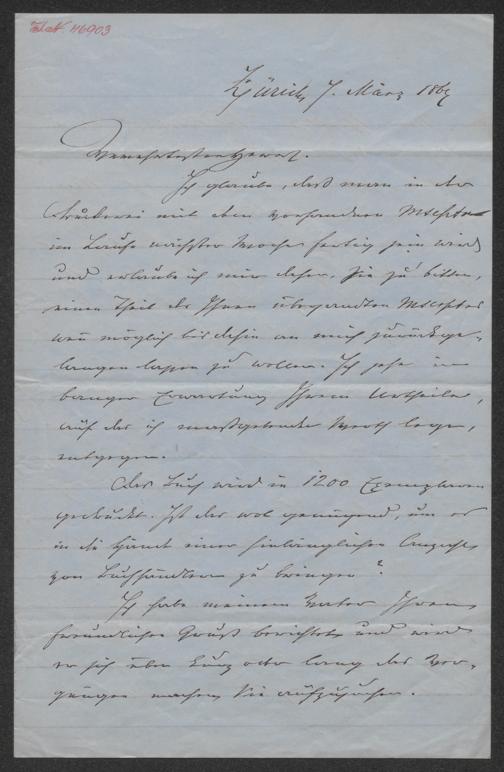 Zürich, 7. März 186
Verehrtester Herr.
Ich glaube, daß man in der
Druckerei mit dem vorhandenen Mscpte
im Laufe nächster Woche fertig sein wird
und erlaube ich mir daher, Sie zu bitten,
einen Theil des Ihnen übersandten Mscptes
wenn möglich bis dahin an mich zurückge-
langen lassen zu wollen. Ich sehe in
banger Erwartung Ihrem Urtheile,
auf das ich maßgebenden Werth lege,
entgegen.
Das Buch wird in 1200 Exemplaren
gedruckt. Ist das wol genügend, um es
in die Hände einer hinlänglichen Anzahl
von Buchhändlern zu bringen?
Ich habe meinem Vater Ihren
freundlichen Gruß berichtet und wird
er sich über kurz oder lang das Ver-
gnügen machen, Sie aufzusuchen.